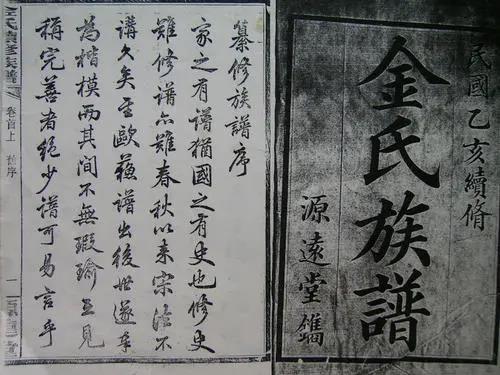 民國乙亥續脩
金氏族譜
源遠堂鐫
纂修族譜序
家之有譜猶國之有史也修史
難修譜亦難春秋以来宗法不
講久矣至歐蘇譜出後世遂奉
為楷模而其間不無瑕瑜互見
稱完善者絕少譜可易言乎
金氏續修族譜
卷首上 序
一